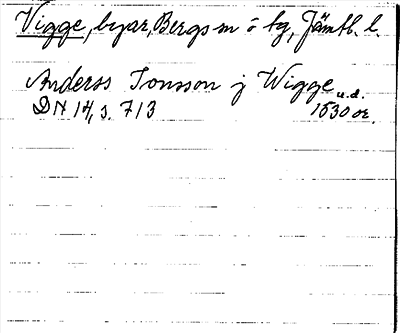 Vigge, byar, Bergs sn o tg, Jämtl. l.
Anderss Jonsson j Wigge u.d.
DN 14, s. 713 1530 or.